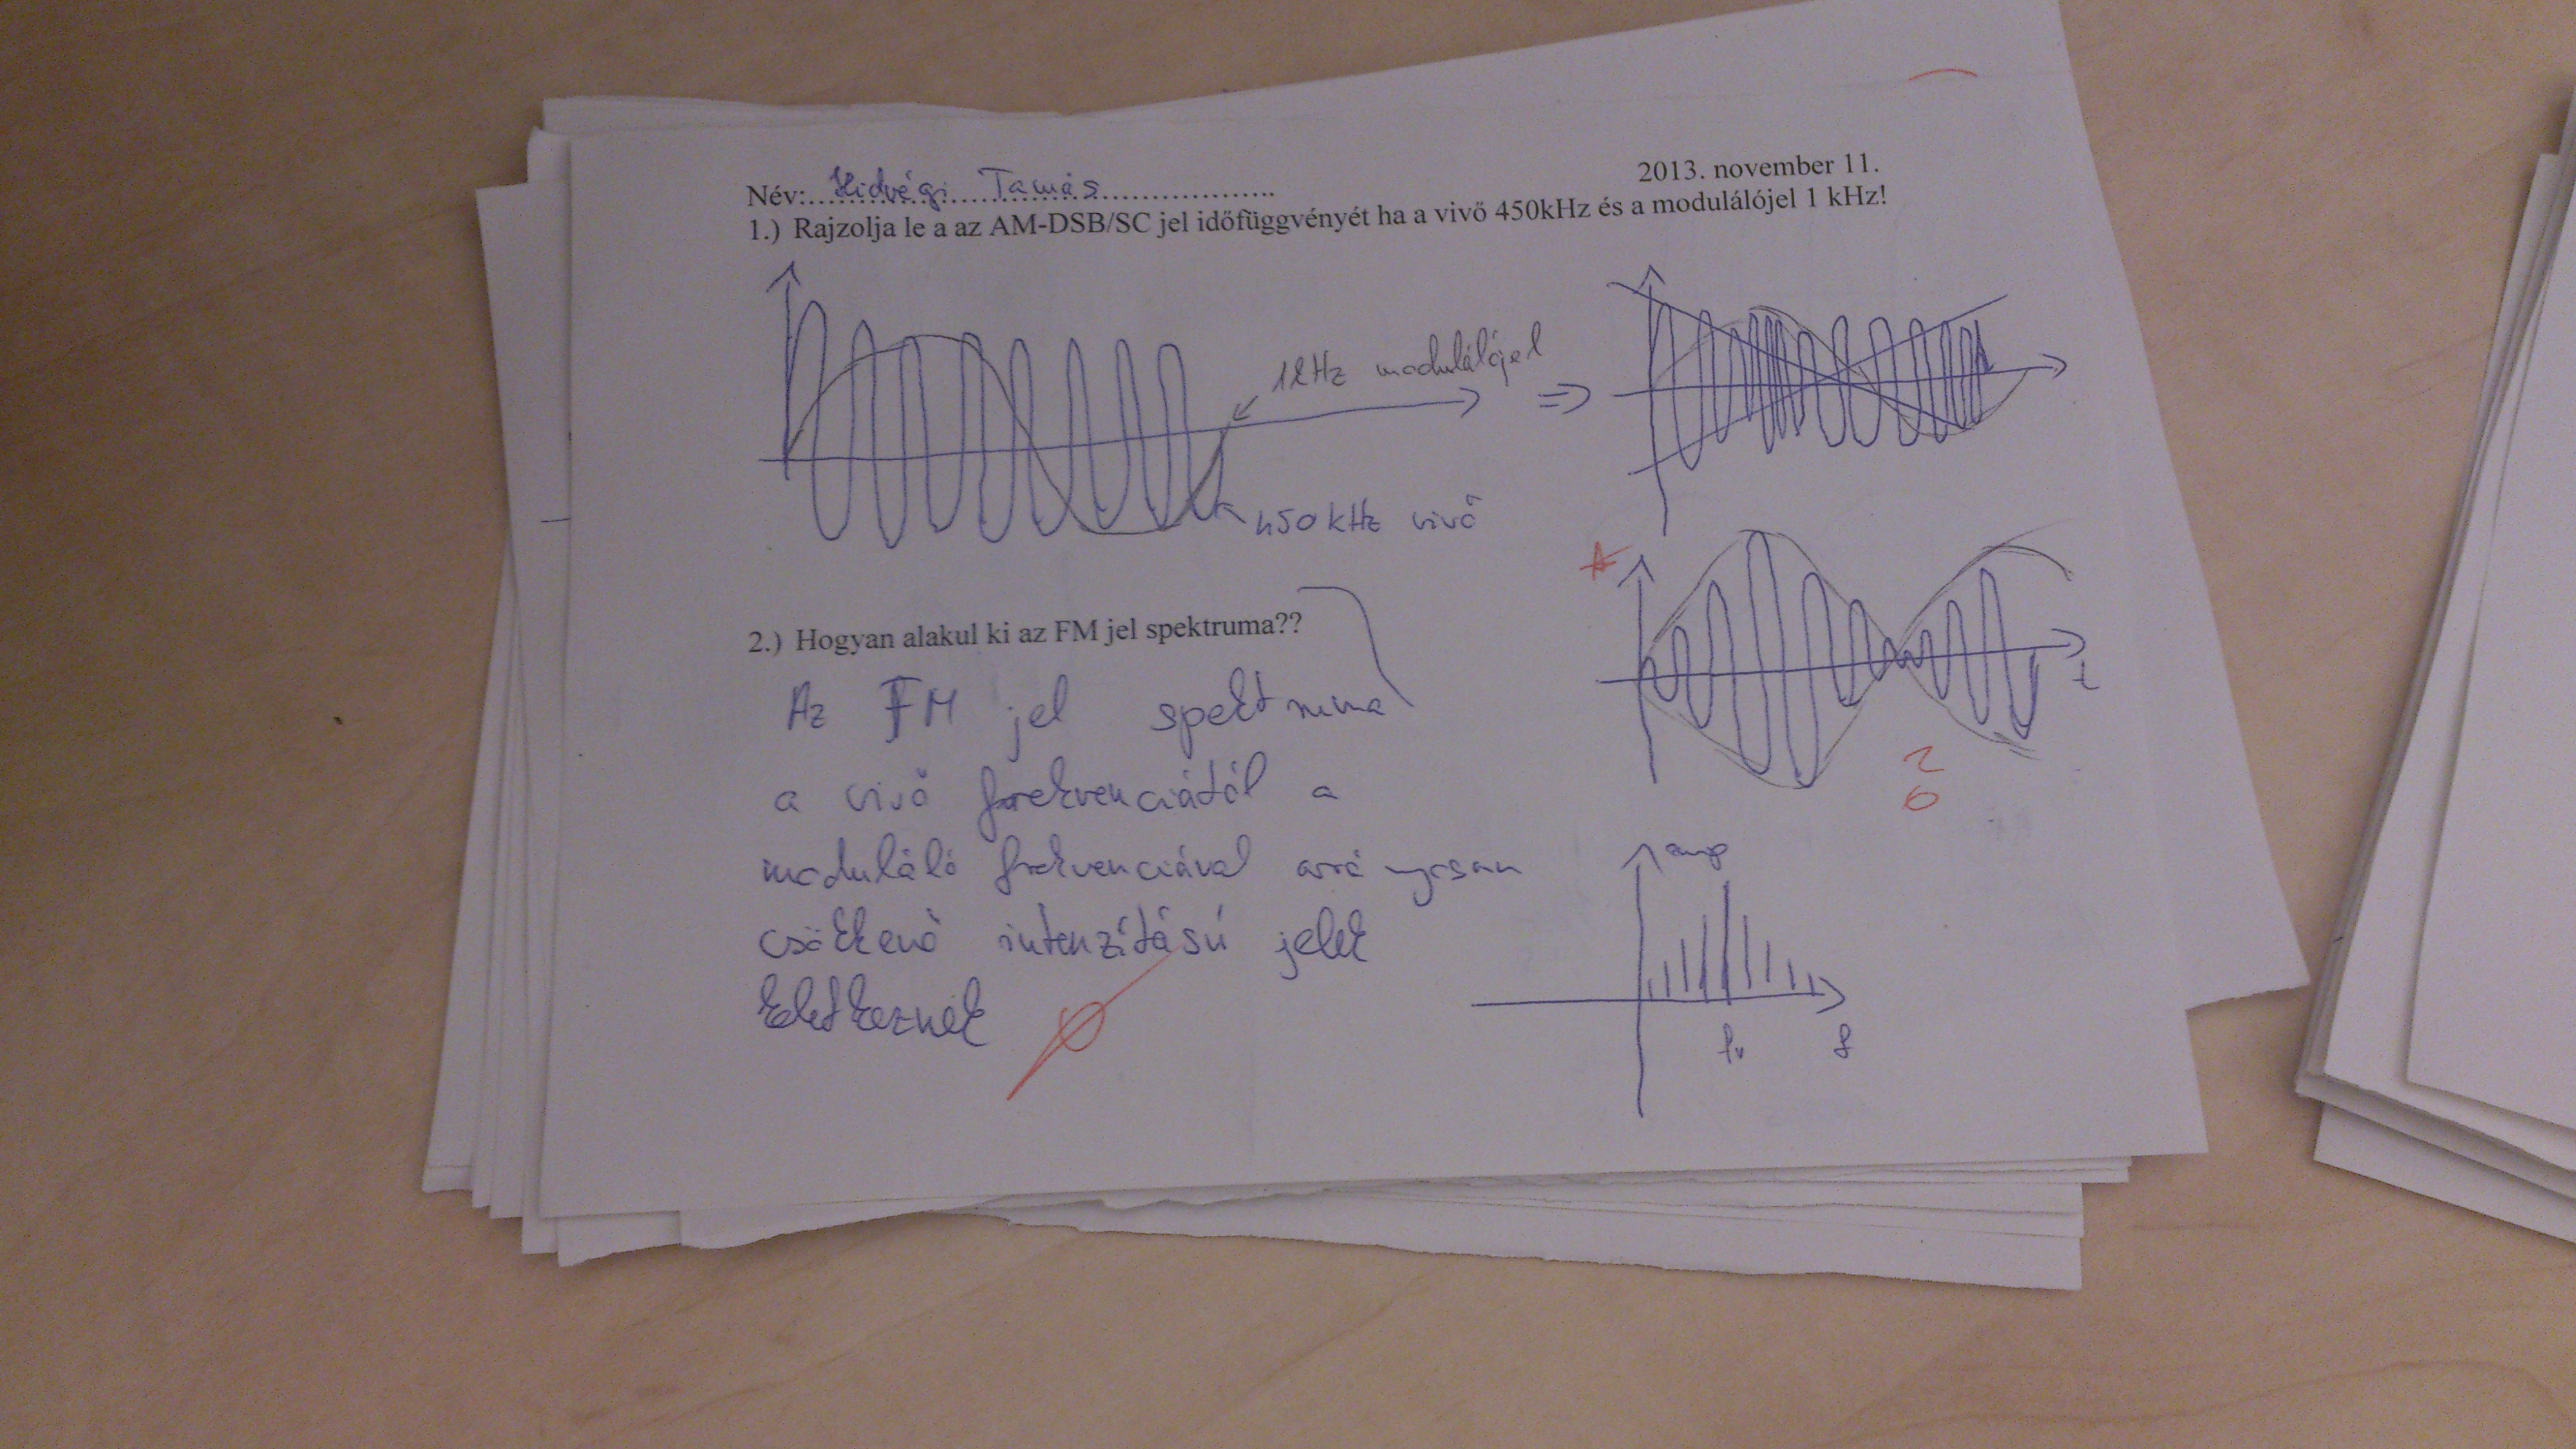 Név: Hidvégi Tamás
2013. november 11.
1.) Rajzolja le a az AM-DSB/SC jel időfüggvényét ha a vivő 450kHz és a modulálójel 1 kHz!
1kHz modulálójel
⇒
450 kHz vivő
A
t
2.) Hogyan alakul ki az FM jel spektruma??
Az FM jel spektruma
a vivő frekvenciától a
moduláló frekvenciával arányosan
csökkenő intenzítású jelek
keletkeznek
amp
fv f